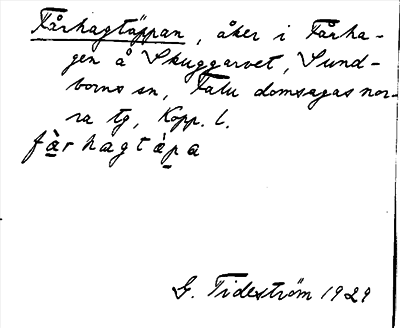 Fårhagtäppan, åker i Fårha-
gen å Skuggarvet, Sund-
borns sn, Falu domsagas nor-
ra tg, Kopp. l.
fàrhagtàpa
G. Tideström 1929